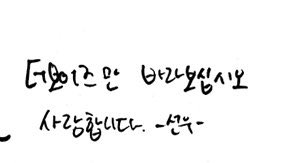 더보이즈만 바라보십시오
사랑합니다. -선우-